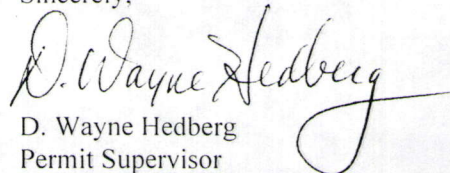 Sincerely,
D. Wayne Hedberg
D. Wayne Hedberg
Permit Supervisor